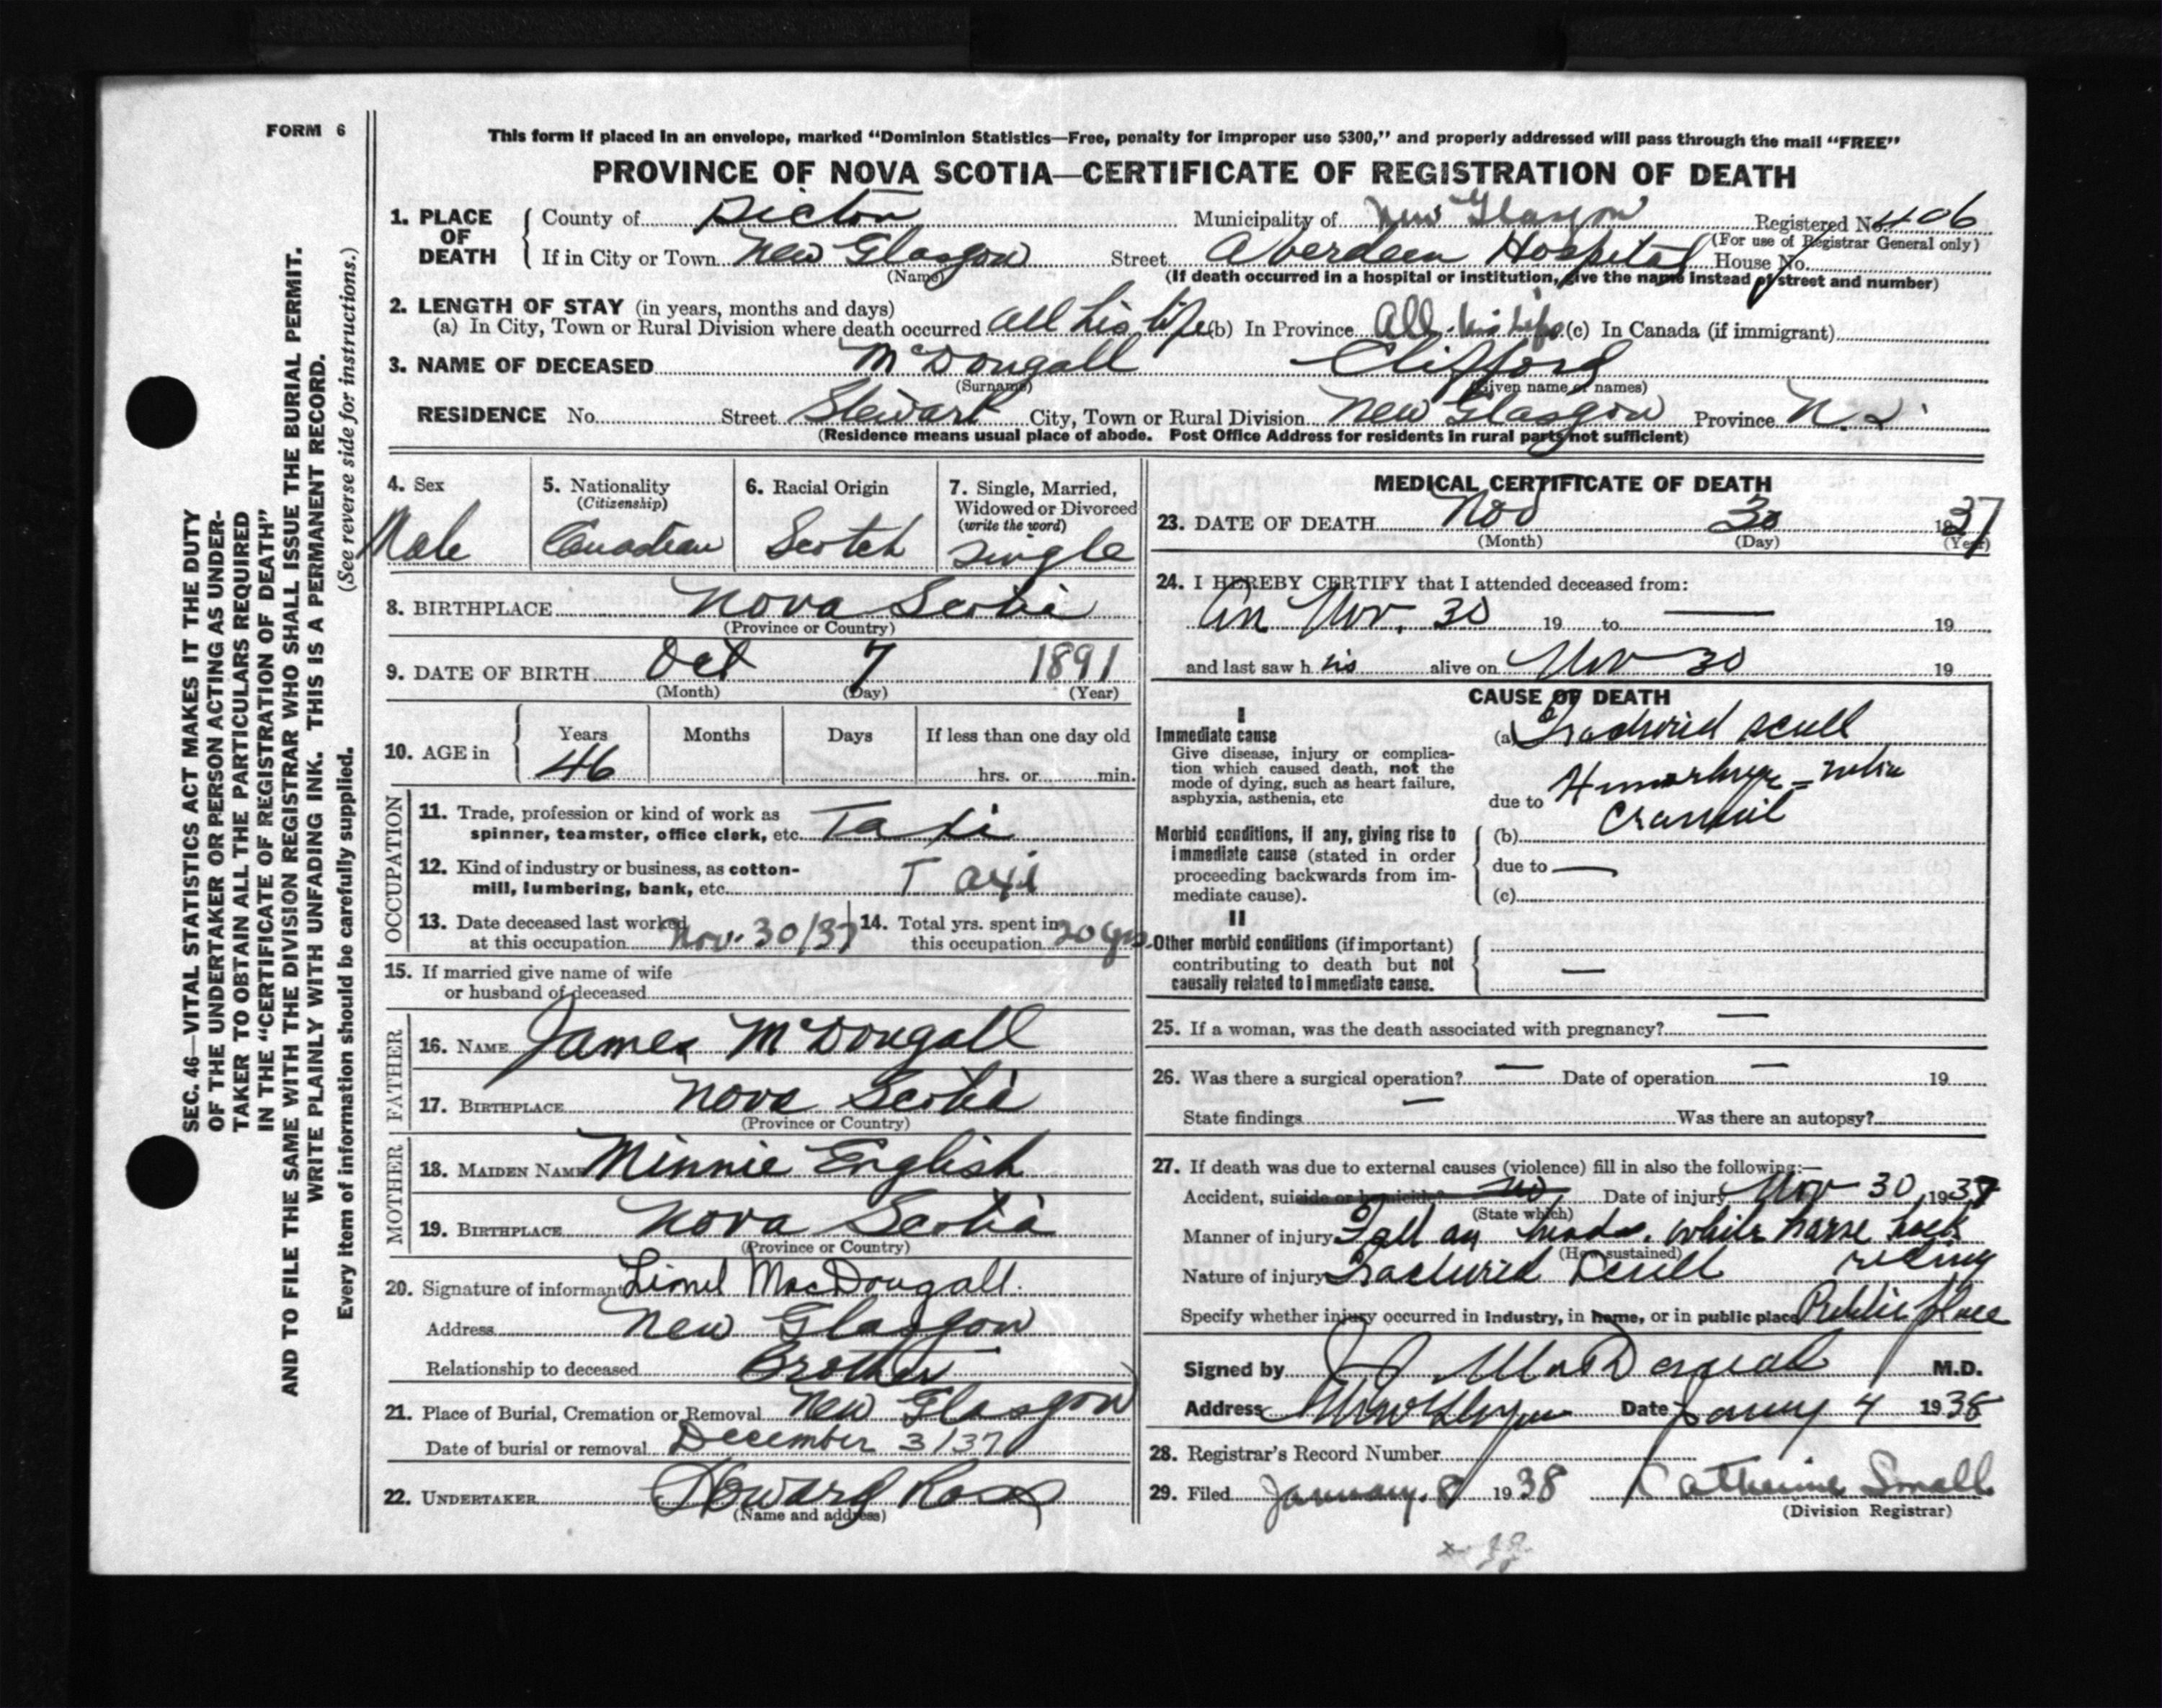 FORM 6
This form if placed in an envelope, marked "Dominion Statistics—Free, penalty for improper use $300," and properly addressed will pass through the mail "FREE"
PROVINCE OF NOVA SCOTIA—CERTIFICATE OF REGISTRATION OF DEATH
1. PLACE OF DEATH County of Pictou Municipality of New Glasgow Registered No. 406
(For use of Registrar General only)
If in City or Town New Glasgow Street Aberdeen Hospital House No.
(Name) (If death occurred in a hospital or institution, give the name instead of street and number)
2. LENGTH OF STAY (in years, months and days)
(a) In City, Town or Rural Division where death occurred all his life (b) In Province All his life (c) In Canada (if immigrant)
3. NAME OF DECEASED McDougall Clifford
(Surname) (Given name or names)
RESIDENCE No. Street Stewart City, Town or Rural Division New Glasgow Province N.S.
(Residence means usual place of abode. Post Office Address for residents in rural parts not sufficient)
4. Sex
Male
5. Nationality
(Citizenship)
Canadian
6. Racial Origin
Scotch
7. Single, Married,
Widowed or Divorced
(write the word)
Single
8. BIRTHPLACE Nova Scotia
(Province or Country)
9. DATE OF BIRTH Oct 7 1891
(Month) (Day) (Year)
10. AGE in Years Months Days If less than one day old
46 hrs. or min.
OCCUPATION
11. Trade, profession or kind of work as
spinner, teamster, office clerk, etc. Taxi
12. Kind of industry or business, as cotton-
mill, lumbering, bank, etc. Taxi
13. Date deceased last worked
at this occupation Nov. 30/37
14. Total yrs. spent in
this occupation 20 yrs
15. If married give name of wife
or husband of deceased
FATHER
16. NAME James McDougall
17. BIRTHPLACE Nova Scotia
(Province or Country)
MOTHER
18. MAIDEN NAME Minnie English
19. BIRTHPLACE Nova Scotia
(Province or Country)
20. Signature of informant Lionel MacDougall.
Address New Glasgow
Relationship to deceased Brother
21. Place of Burial, Cremation or Removal New Glasgow
Date of burial or removal December 3/37
22. UNDERTAKER Howard Ross
(Name and address)
MEDICAL CERTIFICATE OF DEATH
23. DATE OF DEATH Nov 30 1937
(Month) (Day) (Year)
24. I HEREBY CERTIFY that I attended deceased from:
on Nov. 30 19 to — 19
and last saw h his alive on Nov 30 19
CAUSE OF DEATH
I
Immediate cause
Give disease, injury or complica-
tion which caused death, not the
mode of dying, such as heart failure,
asphyxia, asthenia, etc
(a) Fractured scull
due to Hemorhage - intra
Cranial
Morbid conditions, if any, giving rise to
immediate cause (stated in order
proceeding backwards from im-
mediate cause).
(b)
due to —
(c)
II
Other morbid conditions (if important)
contributing to death but not
causally related to immediate cause.
—
25. If a woman, was the death associated with pregnancy? —
26. Was there a surgical operation? — Date of operation — 19
State findings — Was there an autopsy?
27. If death was due to external causes (violence) fill in also the following:—
Accident, suicide or homicide? no, Date of injury Nov 30, 1937
(State which)
Manner of injury Fall on head. while horse back
(How sustained) riding
Nature of injury Fractured Scull
Specify whether injury occurred in industry, in home, or in public place Public place
Signed by M.D.
Address New Glasgow Date Jany 4 1938
28. Registrar's Record Number
29. Filed January. 8 1938 Catherine Small
(Division Registrar)
SEC. 46—VITAL STATISTICS ACT MAKES IT THE DUTY
OF THE UNDERTAKER OR PERSON ACTING AS UNDER-
TAKER TO OBTAIN ALL THE PARTICULARS REQUIRED
IN THE "CERTIFICATE OF REGISTRATION OF DEATH"
AND TO FILE THE SAME WITH THE DIVISION REGISTRAR WHO SHALL ISSUE THE BURIAL PERMIT.
WRITE PLAINLY WITH UNFADING INK. THIS IS A PERMANENT RECORD.
Every item of information should be carefully supplied. (See reverse side for instructions.)